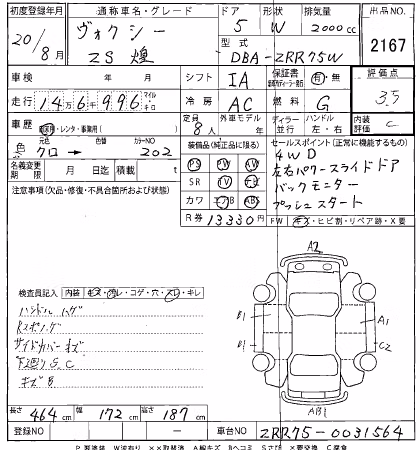 初度登録年月 通称車名・グレード ドア 形状 排気量 出品NO.
20/8月 ヴォクシー 5 W 2000cc 2167
ZS 煌 型式 DBA-ZRR75W
車検 年 月 シフト IA 保証書 有・無 評価点
走行 146996 マイル キロ 冷房 AC 燃料 G 3.5
車歴 自家用・レンタ・事業用( ) 定員 8人 外車モデル 年 ディーラー 並行 ハンドル 左・右 内装 C
色 元色 クロ → 色替 カラーNO 202 装備品(純正品に限る) セールスポイント(正常に機能するもの)
名義変更期限 月 日迄 積載 t PS PW 4WD
注意事項(欠品・修復・不具合箇所および状態) SR TV ナビ 左右パワースライドドア
カワ エアB ABS バックモニター
R券 13330円 プッシュスタート
FW キズ・ヒビ割・リペア跡・X要
A2
検査員記入 内装 キズ・汚レ・コゲ・穴・スレ・キレ
ハンドルハゲ B1 A1
サイドカバーキズ B1 C2
下廻りS,C
キズB AB1
長さ 464cm 幅 172cm 高さ 187cm
登録NO 車台NO ZRR75-0031564